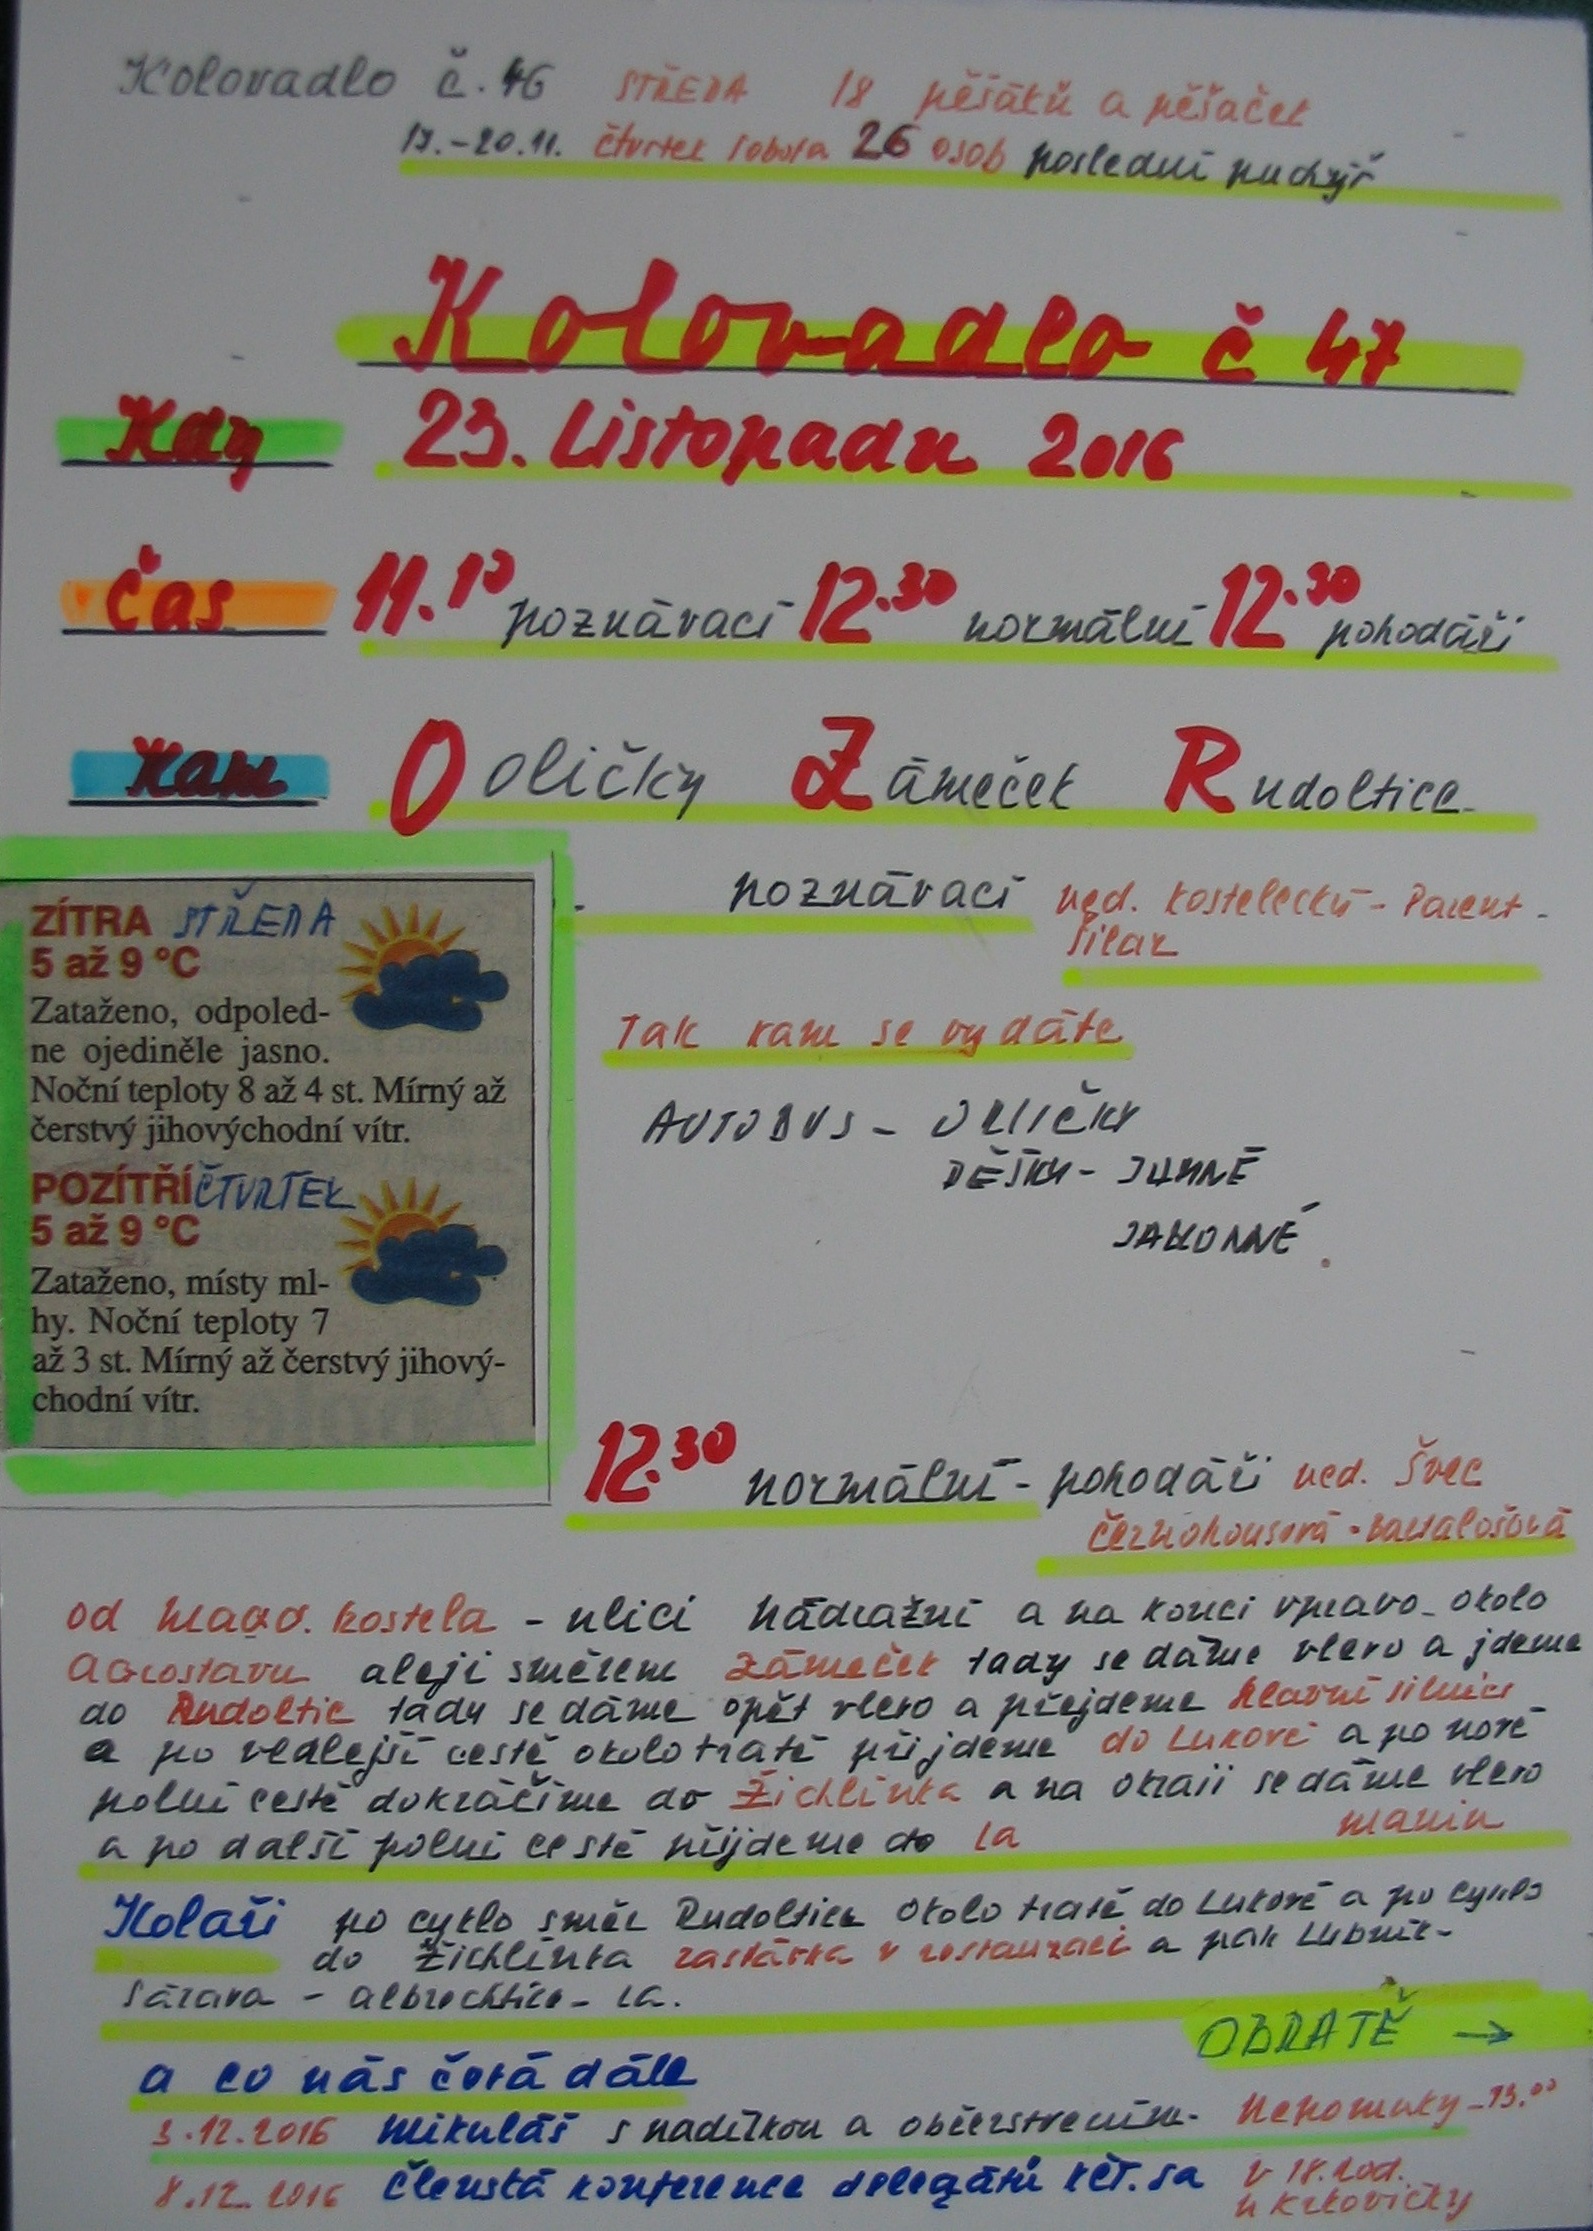 Kolovadlo č. 46 STŘEDA 18 pěšáků a pěšaček
17.-20.11. čtvrtek sobota 26 osob poslední puchýř
Kolovadlo č 47
Kdy 23. Listopadu 2016
Čas 11.10 poznávací 12.30 normální 12.30 pohodáři
Kam O oličky Zámeček Rudoltice
poznávací ved. Kostelecký - Parent -
Silar
ZÍTRA STŘEDA
5 až 9 °C
Zataženo, odpoled-
ne ojediněle jasno.
Noční teploty 8 až 4 st. Mírný až
čerstvý jihovýchodní vítr.
POZÍTŘÍ ČTVRTEK
5 až 9 °C
Zataženo, místy ml-
hy. Noční teploty 7
až 3 st. Mírný až čerstvý jihový-
chodní vítr.
Tak kam se vydáte
AUTOBUS - ORLIČKY
JABLONNÉ.
12.30 normální - pohodáři ved. Švec
Černohousová -
od kostela - ulicí Nádražní a na konci vpravo okolo
Agrostavu alejí směrem Zámeček tady se dáme vlevo a jdeme
do Rudoltic tady se dáme opět vlevo a přejdeme hlavní silnici
a po vedlejší cestě okolo tratě přijdeme do Lukové a po nové
polní cestě dokráčíme do Žichlínka a na okraji se dáme vlevo
a po další polní cestě přijdeme do La
manin
Kolaři po cyklo směr Rudoltice okolo tratě do Lukové a po cyklo
do Žichlínka zastávka v restauraci a pak Lubník-
Sázava - Albrechtice - La.
OBRATĚ →
a co nás čeká dále
3.12.2016 Mikuláš s nadílkou a občerstvením - Nepomuky - 13.00
8.12.2016 Členská konference delegátů KČT. SA v 18.hod.
u Krkovičky